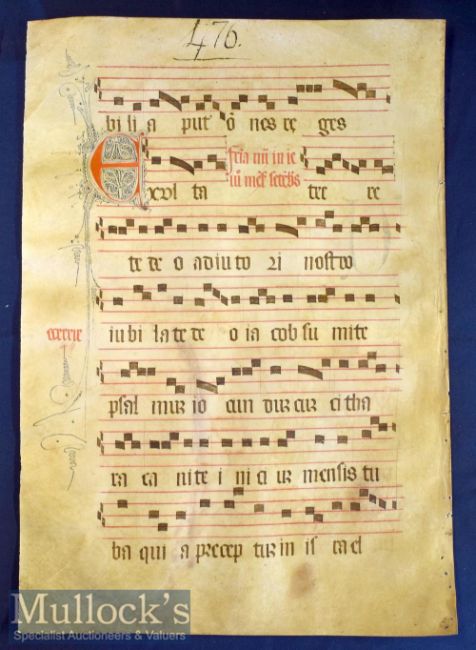 476.
bi li a put o nes re ges
Exvl ta tee re
feria iiii in ie
iu
te de o adiuto ri nostro
iubi la te de o ia cob su mite
psal mur io cun dur cur citha
ra ca nite i ni ci ur mensis tu
ba qui a precep tur in is rael
Mullock's
Specialist Auctioneers & Valuers